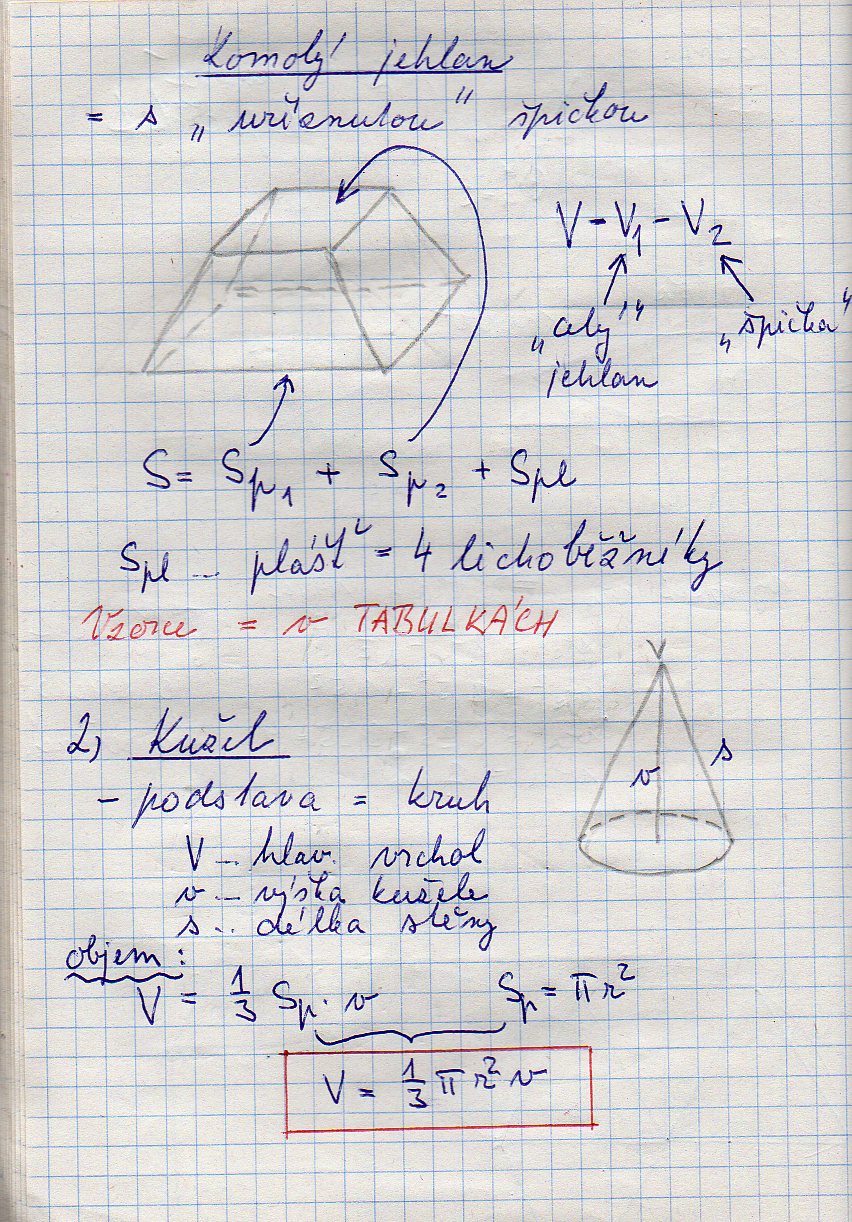 Komolý jehlan
= s „uříznutou" špičkou
V - V₁ - V₂
„celý" jehlan
„špička"
S = Sp₁ + Sp₂ + Spl
Spl ... plášť = 4 lichoběžníky
Vzorce = v TABULKÁCH
2) Kužel
- podstava = kruh
V
v
s
V ... hlav. vrchol
v ... výška kužele
s ... délka stěny
objem:
V = 1/3 Sp · v Sp = πr²
V = 1/3 πr²v